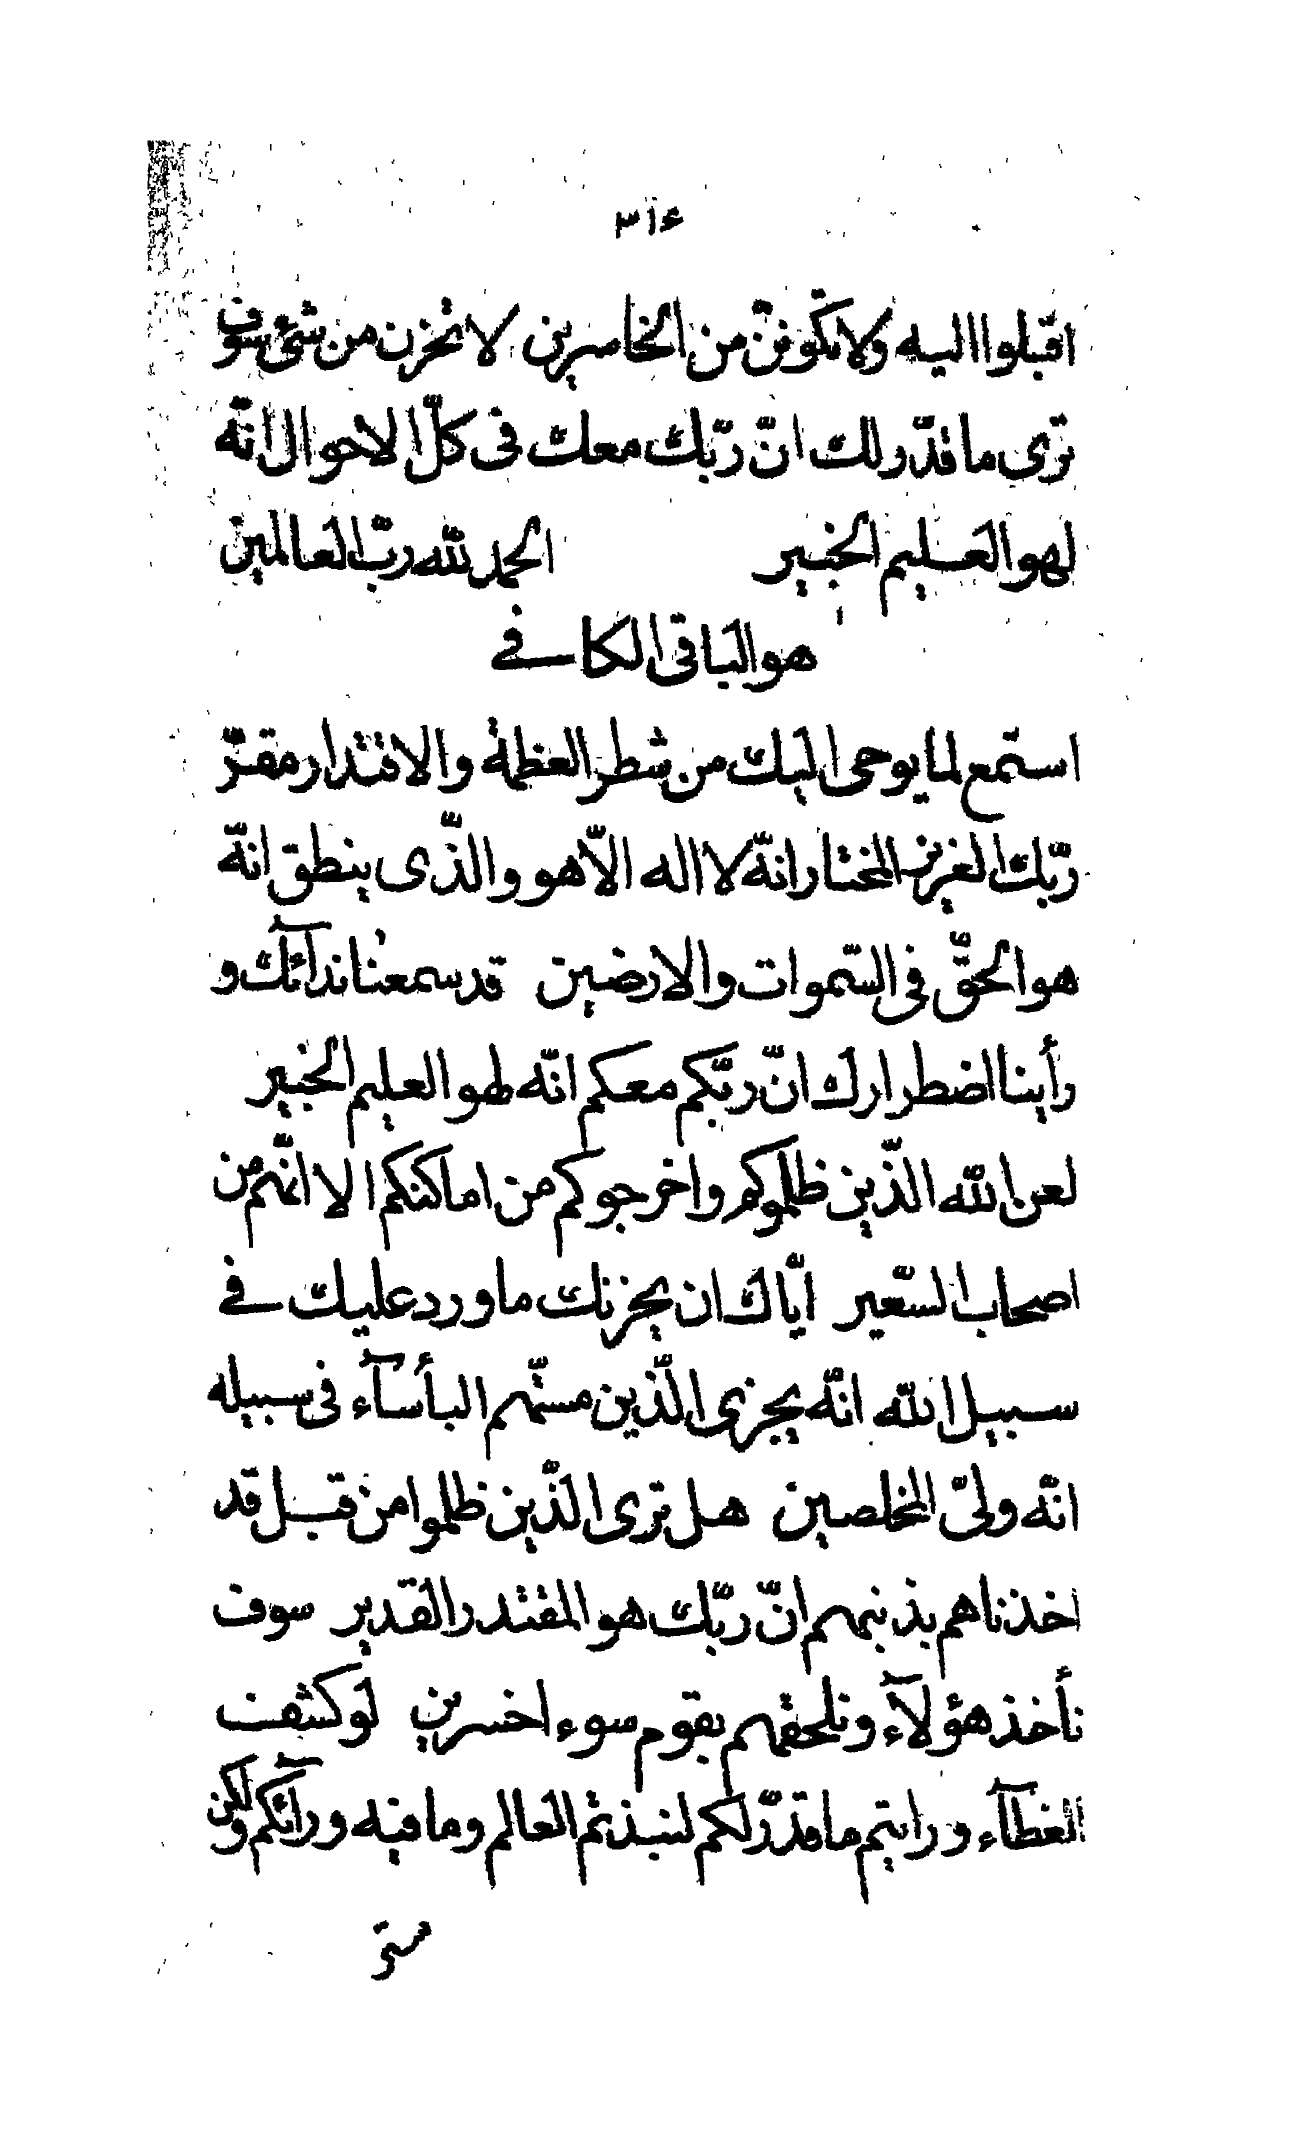 ٣١٤
اقبلوا اليه ولا تكوننّ من الخاسرين لا تحزن من شئ سوف
ترى ما قدّر لك انّ ربّك معك فى كلّ الاحوال انّه
لهو العليم الخبير الحمد لله ربّ العالمين
هو الباقى الكافى
استمع لما يوحى اليك من شطر العظمة والاقتدار مقرّ
ربّك العزيز المختار انّه لا اله الّا هو والذّى ينطق انّه
هو الحقّ فى السّموات والارضين قد سمعنا ندآئك و
رأينا اضطرارك انّ ربّكم معكم انّه لهو العليم الخبير
لعن الله الذّين ظلموكم واخرجوكم من اماكنكم الا انّهم من
اصحاب السّعير ايّاك ان يحزنك ما ورد عليك فى
سبيل الله انّه يجزى الذّين مسّتهم البأسآء فى سبيله
انّه ولىّ المخلصين هل ترى الذّين ظلموا من قبل قد
اخذناهم بذنبهم انّ ربّك هو المقتدر القدير سوف
نأخذ هؤلآء ونلحقهم بقوم سوء اخسرين لو كشفت
الغطآء ورايتم ما قدّر لكم لنبذتم العالم وما فيه ورآئكم ولكن
ستر